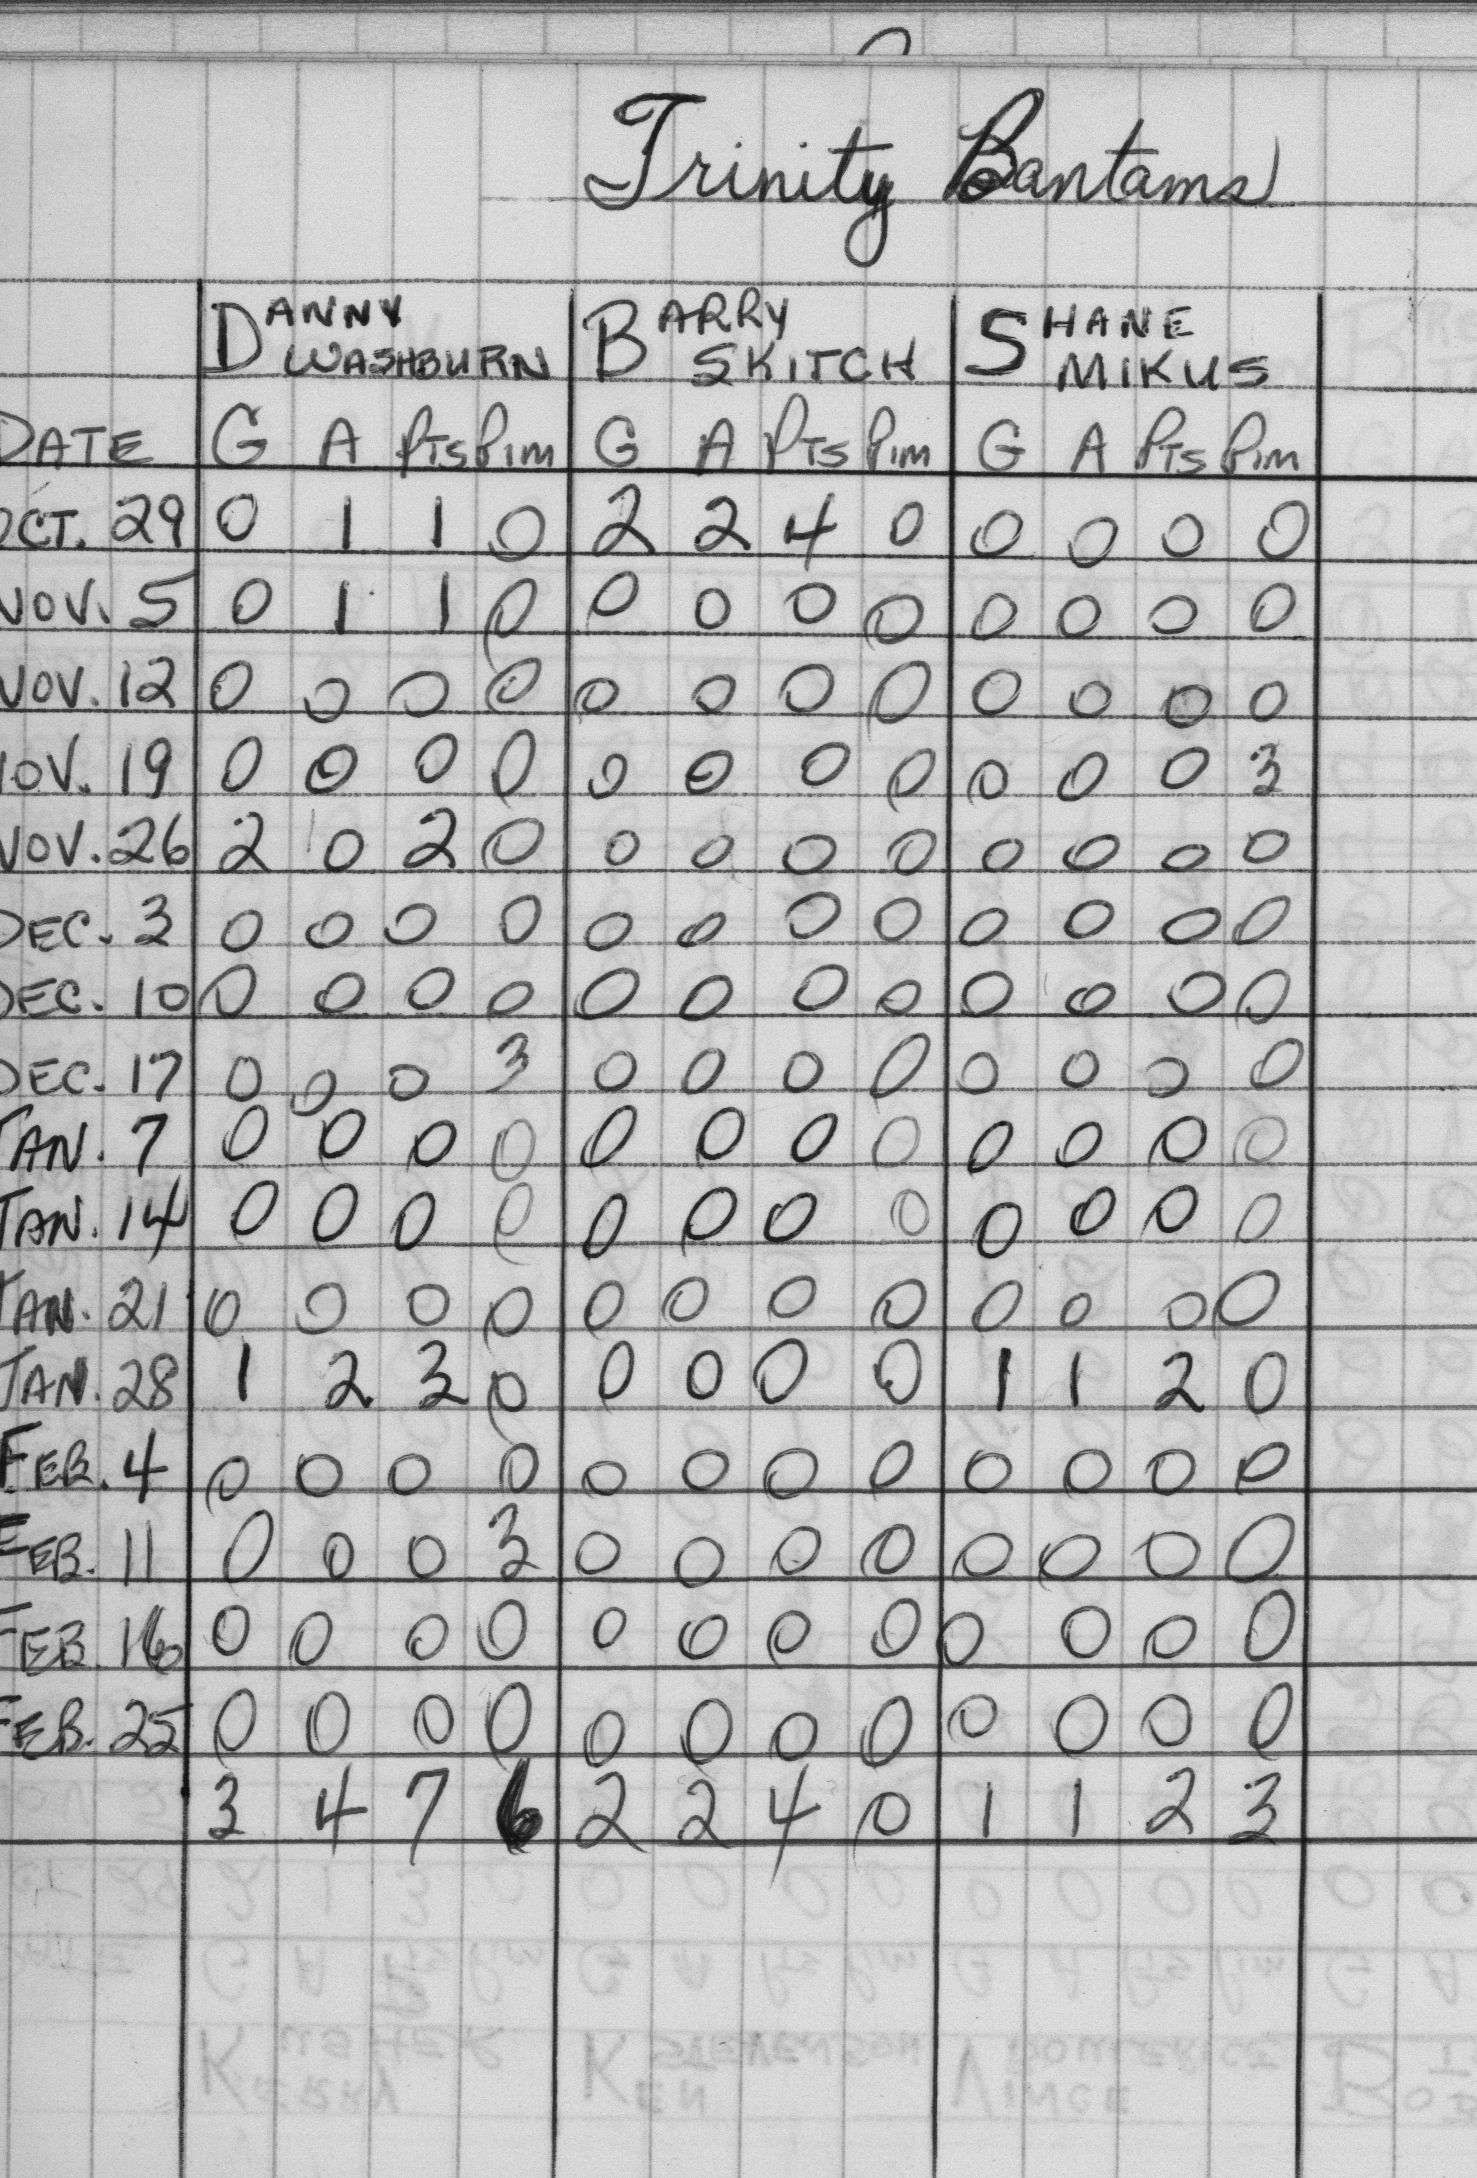 Trinity Bantams
DANNY WASHBURN BARRY SKITCH SHANE MIKUS
DATE G A Pts Pim G A Pts Pim G A Pts Pim
OCT. 29 0 1 1 0 2 2 4 0 0 0 0 0
NOV. 5 0 1 1 0 0 0 0 0 0 0 0 0
NOV. 12 0 0 0 0 0 0 0 0 0 0 0 0
NOV. 19 0 0 0 0 0 0 0 0 0 0 0 3
NOV. 26 2 0 2 0 0 0 0 0 0 0 0 0
DEC. 3 0 0 0 0 0 0 0 0 0 0 0 0
DEC. 10 0 0 0 0 0 0 0 0 0 0 0 0
DEC. 17 0 0 0 3 0 0 0 0 0 0 0 0
JAN. 7 0 0 0 0 0 0 0 0 0 0 0 0
JAN. 14 0 0 0 0 0 0 0 0 0 0 0 0
JAN. 21 0 0 0 0 0 0 0 0 0 0 0 0
JAN. 28 1 2 3 0 0 0 0 0 1 1 2 0
FEB. 4 0 0 0 0 0 0 0 0 0 0 0 0
FEB. 11 0 0 0 3 0 0 0 0 0 0 0 0
FEB. 16 0 0 0 0 0 0 0 0 0 0 0 0
FEB. 25 0 0 0 0 0 0 0 0 0 0 0 0
3 4 7 6 2 2 4 0 1 1 2 3